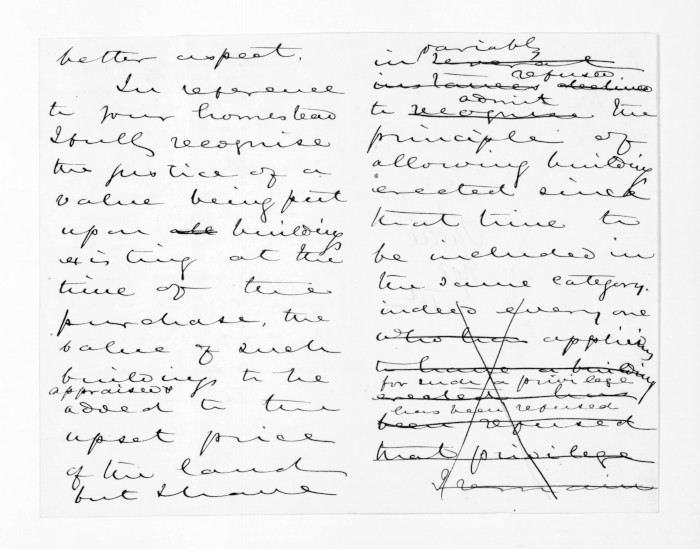 better aspect.
In reference
to your homestead
I fully recognise
the justice of a
value being put
upon all buildings
existing at the
time of the
purchase, the
value of such
buildings to be
appraised &
added to the
upset price
of the land
but I have
variably
in several
refused
instances declined
admit
to recognise the
principle of
allowing buildings
erected since
that time to
be included in
the same category.
indeed every one
who has applying
to have a building
for such a privilege
erected has
has been refused
been refused
that privilege
I remain